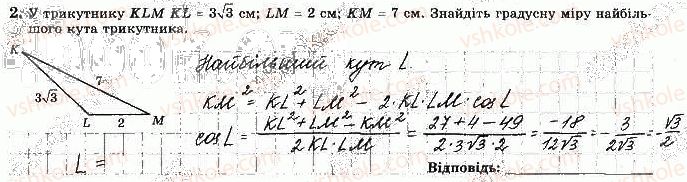 2. У трикутнику KLM KL = 3√3 см; LM = 2 см; KM = 7 см. Знайдіть градусну міру найбіль-
шого кута трикутника.
Найбільший кут L.
K
7
3√3
L 2 M
KM² = KL² + LM² - 2·KL·LM·cosL
cosL = (KL² + LM² - KM²)/(2KL·LM) = (27+4-49)/(2·3√3·2) = -18/(12√3) = -3/(2√3) = -√3/2
L =
Відповідь: